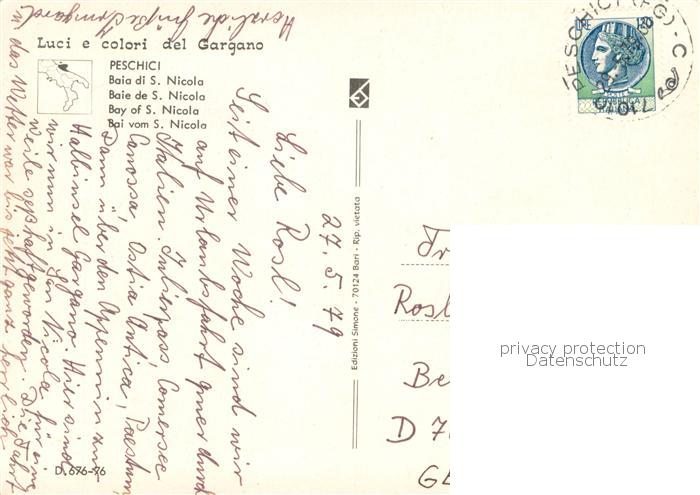 Luci e colori del Gargano
PESCHICI
Baia di S. Nicola
Baie de S. Nicola
Bay of S. Nicola
Bai vom S. Nicola
27.5.79
Liebe Rosl!
Seit einer Woche sind wir
auf Urlaubsfahrt quer durch
Italien. Julierpass, Comersee
Canossa, Ostia Antica, Paestum
Dann über den Appennin zur
Halbinsel Gargano. Hier sind
wir nun in San Nicola für eine
Weile seßhaft geworden. Die Fahrt
u. das Wetter war bis jetzt ganz herrlich
Herzliche Grüße Irmgard
D. 676-76
Edizioni Simone - 70124 Bari - Rip. vietata
LIRE 120
PESCHICI (FG)
Rosl
Be
D 7
privacy protection
Datenschutz